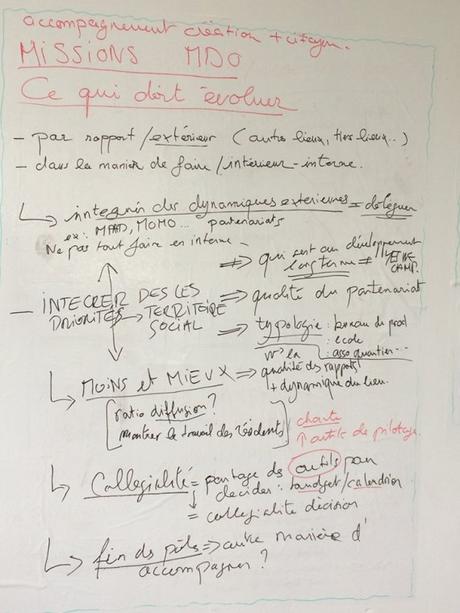 accompagnement création + citoyen.
MISSIONS MDO
Ce qui doit évoluer
– par rapport / extérieur (autres lieux, tiers lieux...)
– dans la manière de faire / intérieur-interne.
↳ intégrer des dynamiques extérieures = déléguer
ex: MMAD, MOMO... partenariats
Ne pas tout faire en interne –
⇒ qui est au développement
long terme ≠
CAMP.
– INTEGRER DES LES ⇒ qualité du partenariat
PRIORITES → TERRITOIRE
SOCIAL ⇒ typologie : bureau de prod
: école
: asso quartier...
↳ MOINS et MIEUX ⇒ qualité des rapports
+ dynamique du lieu.
[ratio diffusion?
montrer le travail des résidents] charte
↑ outils de pilotage
↳ Collégialité = partage des outils pour
décider : budget / calendrier
= collégialité décision
↳ fin des pôles ⇒ autre manière d'
accompagner ?